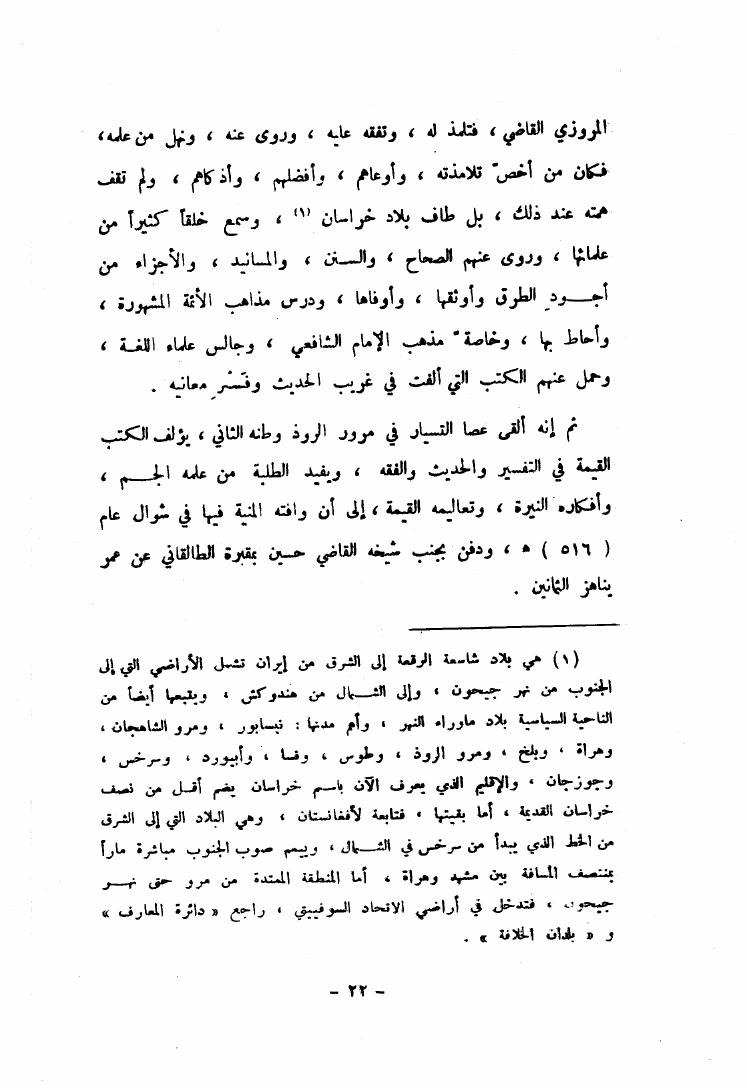 المروزي القاضي ، فتلمذ له ، وتفقه عليه ، وروى عنه ، ونهل من علمه،
فكان من أخصّ تلامذته ، وأوعاهم ، وأفضلهم ، وأذكاهم ، ولم تقف
همته عند ذلك ، بل طاف بلاد خراسان (١) ، وسمع خلقاً كثيراً من
علمائها ، وروى عنهم الصحاح ، والسنن ، والمسانيد ، والأجزاء من
أجود الطرق وأوثقها ، وأوفاها ، ودرس مذاهب الأئمة المشهورة ،
وأحاط بها ، وخاصة ً مذهب الإمام الشافعي ، وجالس علماء اللغة ،
وحمل عنهم الكتب التي ألفت في غريب الحديث وفَسْرِ معانيه .
ثم إنه ألقى عصا التسيار في مرور الروذ وطنه الثاني ، يؤلف الكتب
القيمة في التفسير والحديث والفقه ، ويفيد الطلبة من علمه الجم ،
وأفكاره النيرة ، وتعاليمه القيمة ، إلى أن وافته المنية فيها في شوال عام
( ٥١٦ ) ه ، ودفن بجنب شيخه القاضي حسين بمقبرة الطالقاني عن عمر
يناهز الثمانين .
(١) هي بلاد شاسعة الرقعة إلى الشرق من إيران تشمل الأراضي التي إلى
الجنوب من نهر جيحون ، وإلى الشمال من هندوكش ، ويتبعها أيضاً من
الناحية السياسية بلاد ماوراء النهر ، وأهم مدنها : نيسابور ، ومرو الشاهجان ،
وهراة ، وبلخ ، ومرو الروذ ، وطوس ، وفسا ، وأبيورد ، وسرخس ،
وجوزجان ، والإقليم الذي يعرف الآن باسم خراسان يضم أقل من نصف
خراسان القديمة ، أما بقيتها ، فتابعة لأفغانستان ، وهي البلاد التي إلى الشرق
من الخط الذي يبدأ من سرخس في الشمال ، وييمم صوب الجنوب مباشرة ماراً
بمنتصف المسافة بين مشهد وهراة ، أما المنطقة الممتدة من مرو حتى نهر
جيحون ، فتدخل في أراضي الاتحاد السوفييتي ، راجع « دائرة المعارف »
و « بلدان الخلافة » .
- ٢٢ -